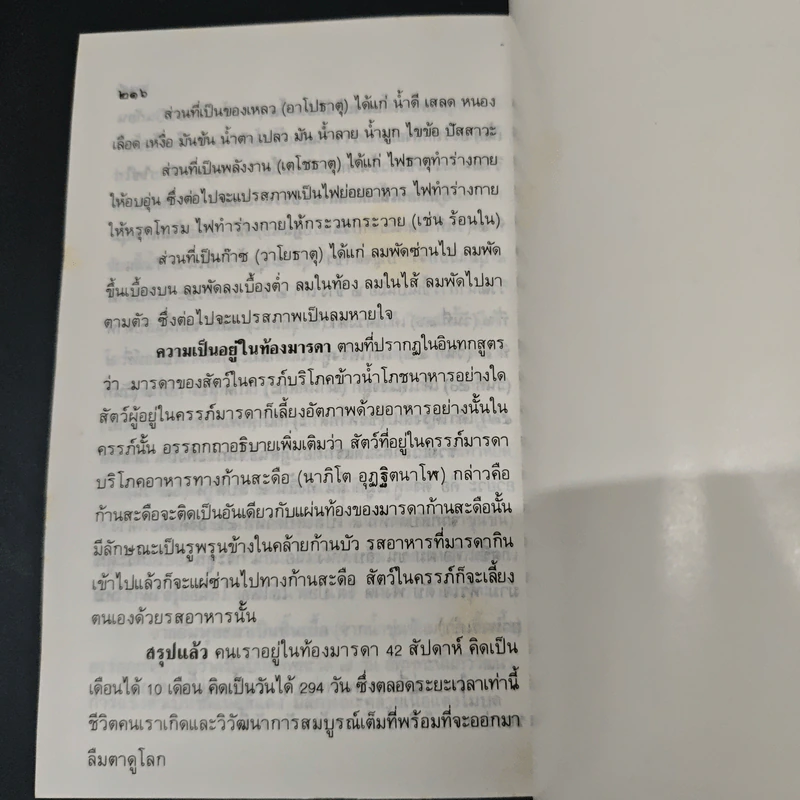 ๒๑๖
ส่วนที่เป็นของเหลว (อาโปธาตุ) ได้แก่ น้ำดี เสลด หนอง
เลือด เหงื่อ มันข้น น้ำตา เปลว มัน น้ำลาย น้ำมูก ไขข้อ ปัสสาวะ
ส่วนที่เป็นพลังงาน (เตโชธาตุ) ได้แก่ ไฟธาตุทำร่างกาย
ให้อบอุ่น ซึ่งต่อไปจะแปรสภาพเป็นไฟย่อยอาหาร ไฟทำร่างกาย
ให้หรุดโทรม ไฟทำร่างกายให้กระวนกระวาย (เช่น ร้อนใน)
ส่วนที่เป็นก๊าซ (วาโยธาตุ) ได้แก่ ลมพัดซ่านไป ลมพัด
ขึ้นเบื้องบน ลมพัดลงเบื้องต่ำ ลมในท้อง ลมในไส้ ลมพัดไปมา
ตามตัว ซึ่งต่อไปจะแปรสภาพเป็นลมหายใจ
ความเป็นอยู่ในท้องมารดา ตามที่ปรากฏในอินทกสูตร
ว่า มารดาของสัตว์ในครรภ์บริโภคข้าวน้ำโภชนาหารอย่างใด
สัตว์ผู้อยู่ในครรภ์มารดาก็เลี้ยงอัตภาพด้วยอาหารอย่างนั้นใน
ครรภ์นั้น อรรถกถาอธิบายเพิ่มเติมว่า สัตว์ที่อยู่ในครรภ์มารดา
บริโภคอาหารทางก้านสะดือ (นาภิโต อุฏฐิตนาโฬ) กล่าวคือ
ก้านสะดือจะติดเป็นอันเดียวกับแผ่นท้องของมารดาก้านสะดือนั้น
มีลักษณะเป็นรูพรุนข้างในคล้ายก้านบัว รสอาหารที่มารดากิน
เข้าไปแล้วก็จะแผ่ซ่านไปทางก้านสะดือ สัตว์ในครรภ์ก็จะเลี้ยง
ตนเองด้วยรสอาหารนั้น
สรุปแล้ว คนเราอยู่ในท้องมารดา 42 สัปดาห์ คิดเป็น
เดือนได้ 10 เดือน คิดเป็นวันได้ 294 วัน ซึ่งตลอดระยะเวลาเท่านี้
ชีวิตคนเราเกิดและวิวัฒนาการสมบูรณ์เต็มที่พร้อมที่จะออกมา
ลืมตาดูโลก